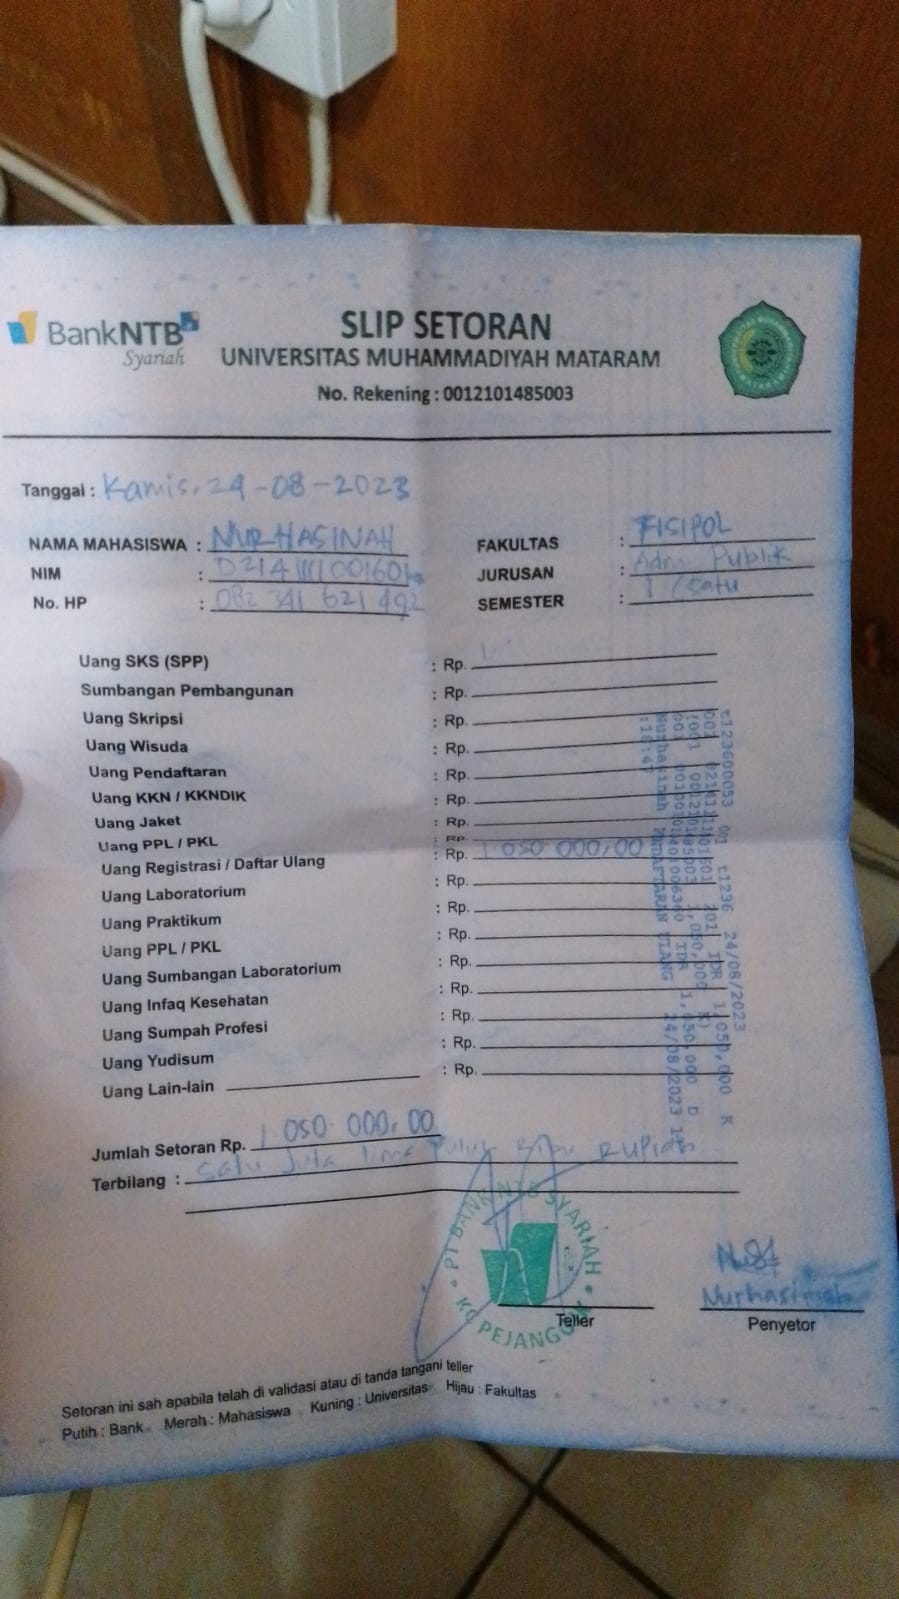 BankNTB
Syariah
SLIP SETORAN
UNIVERSITAS MUHAMMADIYAH MATARAM
No. Rekening : 0012101485003
Tanggal : Kamis, 24-08-2023
NAMA MAHASISWA : NURHASINAH
NIM :
No. HP : 082 341 621 492
FAKULTAS : FISIPOL
JURUSAN : Adm Publik
SEMESTER : 1 / satu
Uang SKS (SPP) : Rp.
Sumbangan Pembangunan : Rp.
Uang Skripsi : Rp.
Uang Wisuda : Rp.
Uang Pendaftaran : Rp.
Uang KKN / KKNDIK : Rp.
Uang Jaket : Rp.
Uang PPL / PKL : Rp.
Uang Registrasi / Daftar Ulang : Rp. 1.050 000,00
Uang Laboratorium : Rp.
Uang Praktikum : Rp.
Uang PPL / PKL : Rp.
Uang Sumbangan Laboratorium : Rp.
Uang Infaq Kesehatan : Rp.
Uang Sumpah Profesi : Rp.
Uang Yudisum : Rp.
Uang Lain-lain : Rp.
t123600053 001 t1236 24/08/2023
201 IDR 1,050,000 K
0012101485003 1,050,000
IDR 1,050,000 D
Nurhasinah PENDAFTARAN ULANG 24/08/2023
Jumlah Setoran Rp. 1.050 000,00
Terbilang : Satu Juta lima Puluh Ribu RUPiah
PT BANK NTB SYARIAH
KC PEJANGGIK
Teller
Nurhasinah
Penyetor
Setoran ini sah apabila telah di validasi atau di tanda tangani teller
Putih : Bank Merah : Mahasiswa Kuning : Universitas Hijau : Fakultas